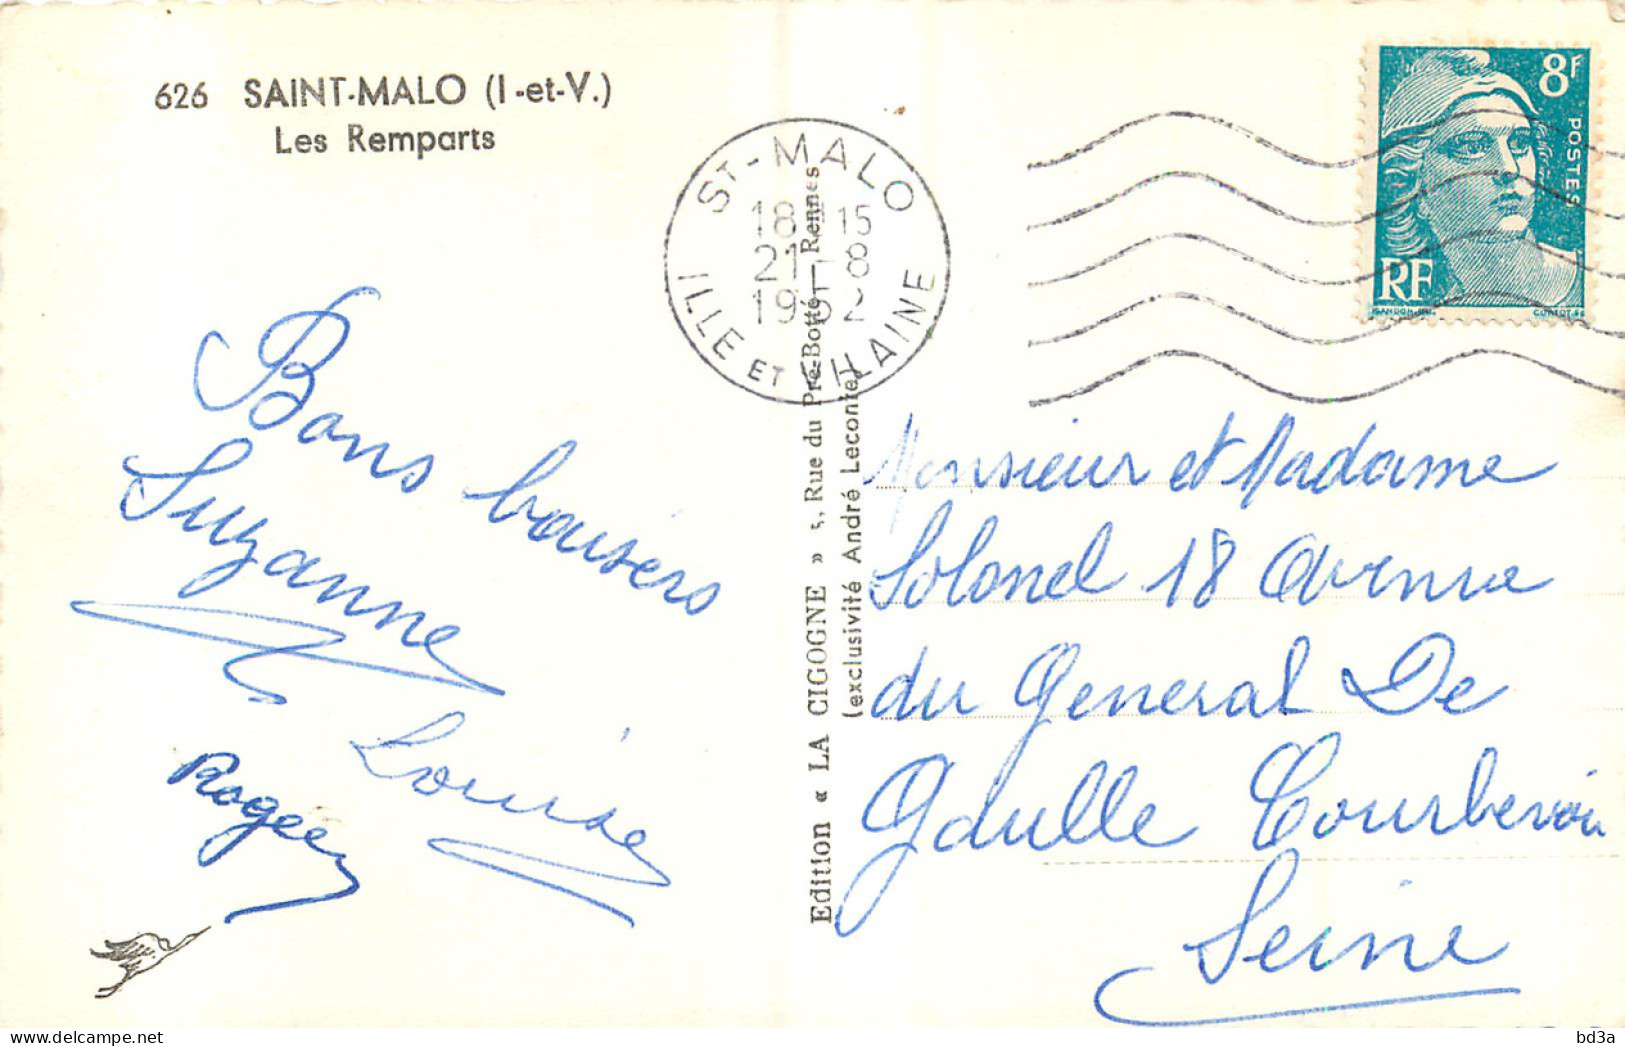 626 SAINT-MALO (I-et-V.)
Les Remparts
ST-MALO
18H15
21-8
1952
ILLE ET VILAINE
8F
POSTES
RF
GANDON
Bons baisers
Suzanne
Louise
Roger
Edition « LA CIGOGNE » 5, Rue du Pré-Botté — Rennes
(exclusivité André Leconte)
Monsieur et Madame
Solonel 18 Avenue
du General De
Gaulle Courbevoie
Seine
delcampe.net
bd3a